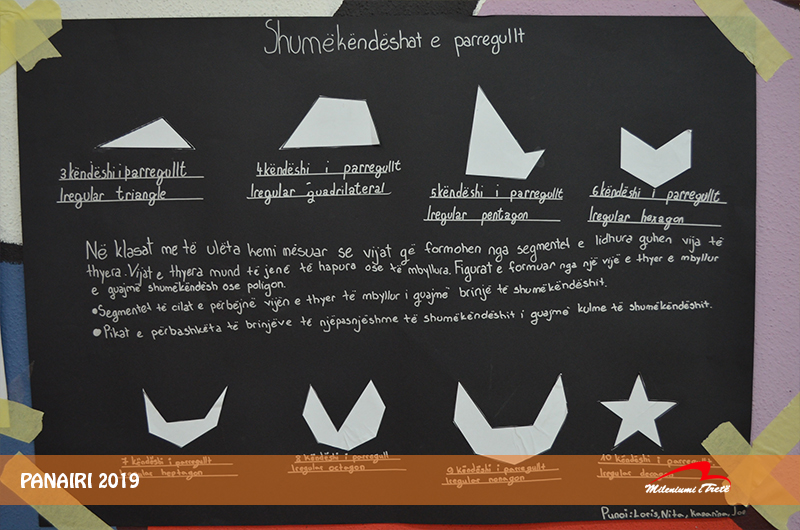 Shumëkëndëshat e parregullt
3këndëshi i parregullt
Iregular triangle
4këndëshi i parregullt
Iregular quadrilateral
5këndëshi i parregullt
Iregular pentagon
6këndëshi i parregullt
Iregular hexagon
Në klasat me të ulëta kemi mësuar se vijat që formohen nga segmentet e lidhura quhen vija të
thyera. Vijat e thyera mund të jenë të hapura ose të mbyllura. Figurat e formuar nga një vijë e thyer e mbyllur
e quajmë shumëkëndësh ose poligon.
•Segmentet të cilat e përbëjnë vijën e thyer të mbyllur i quajmë brinjë të shumëkëndëshit.
•Pikat e përbashkëta të brinjëve të njëpasnjëshme të shumëkëndëshit i quajmë kulme të shumëkëndëshit.
7 këndëshi i parregullt
Iregular heptagon
8 këndëshi i parregull
Iregular octagon
9 këndëshi i parregullt
Iregular nonagon
10 këndëshi i parregullt
Iregular
PANAIRI 2019
Mileniumi i Tretë
Punoi: Loris, Nita,